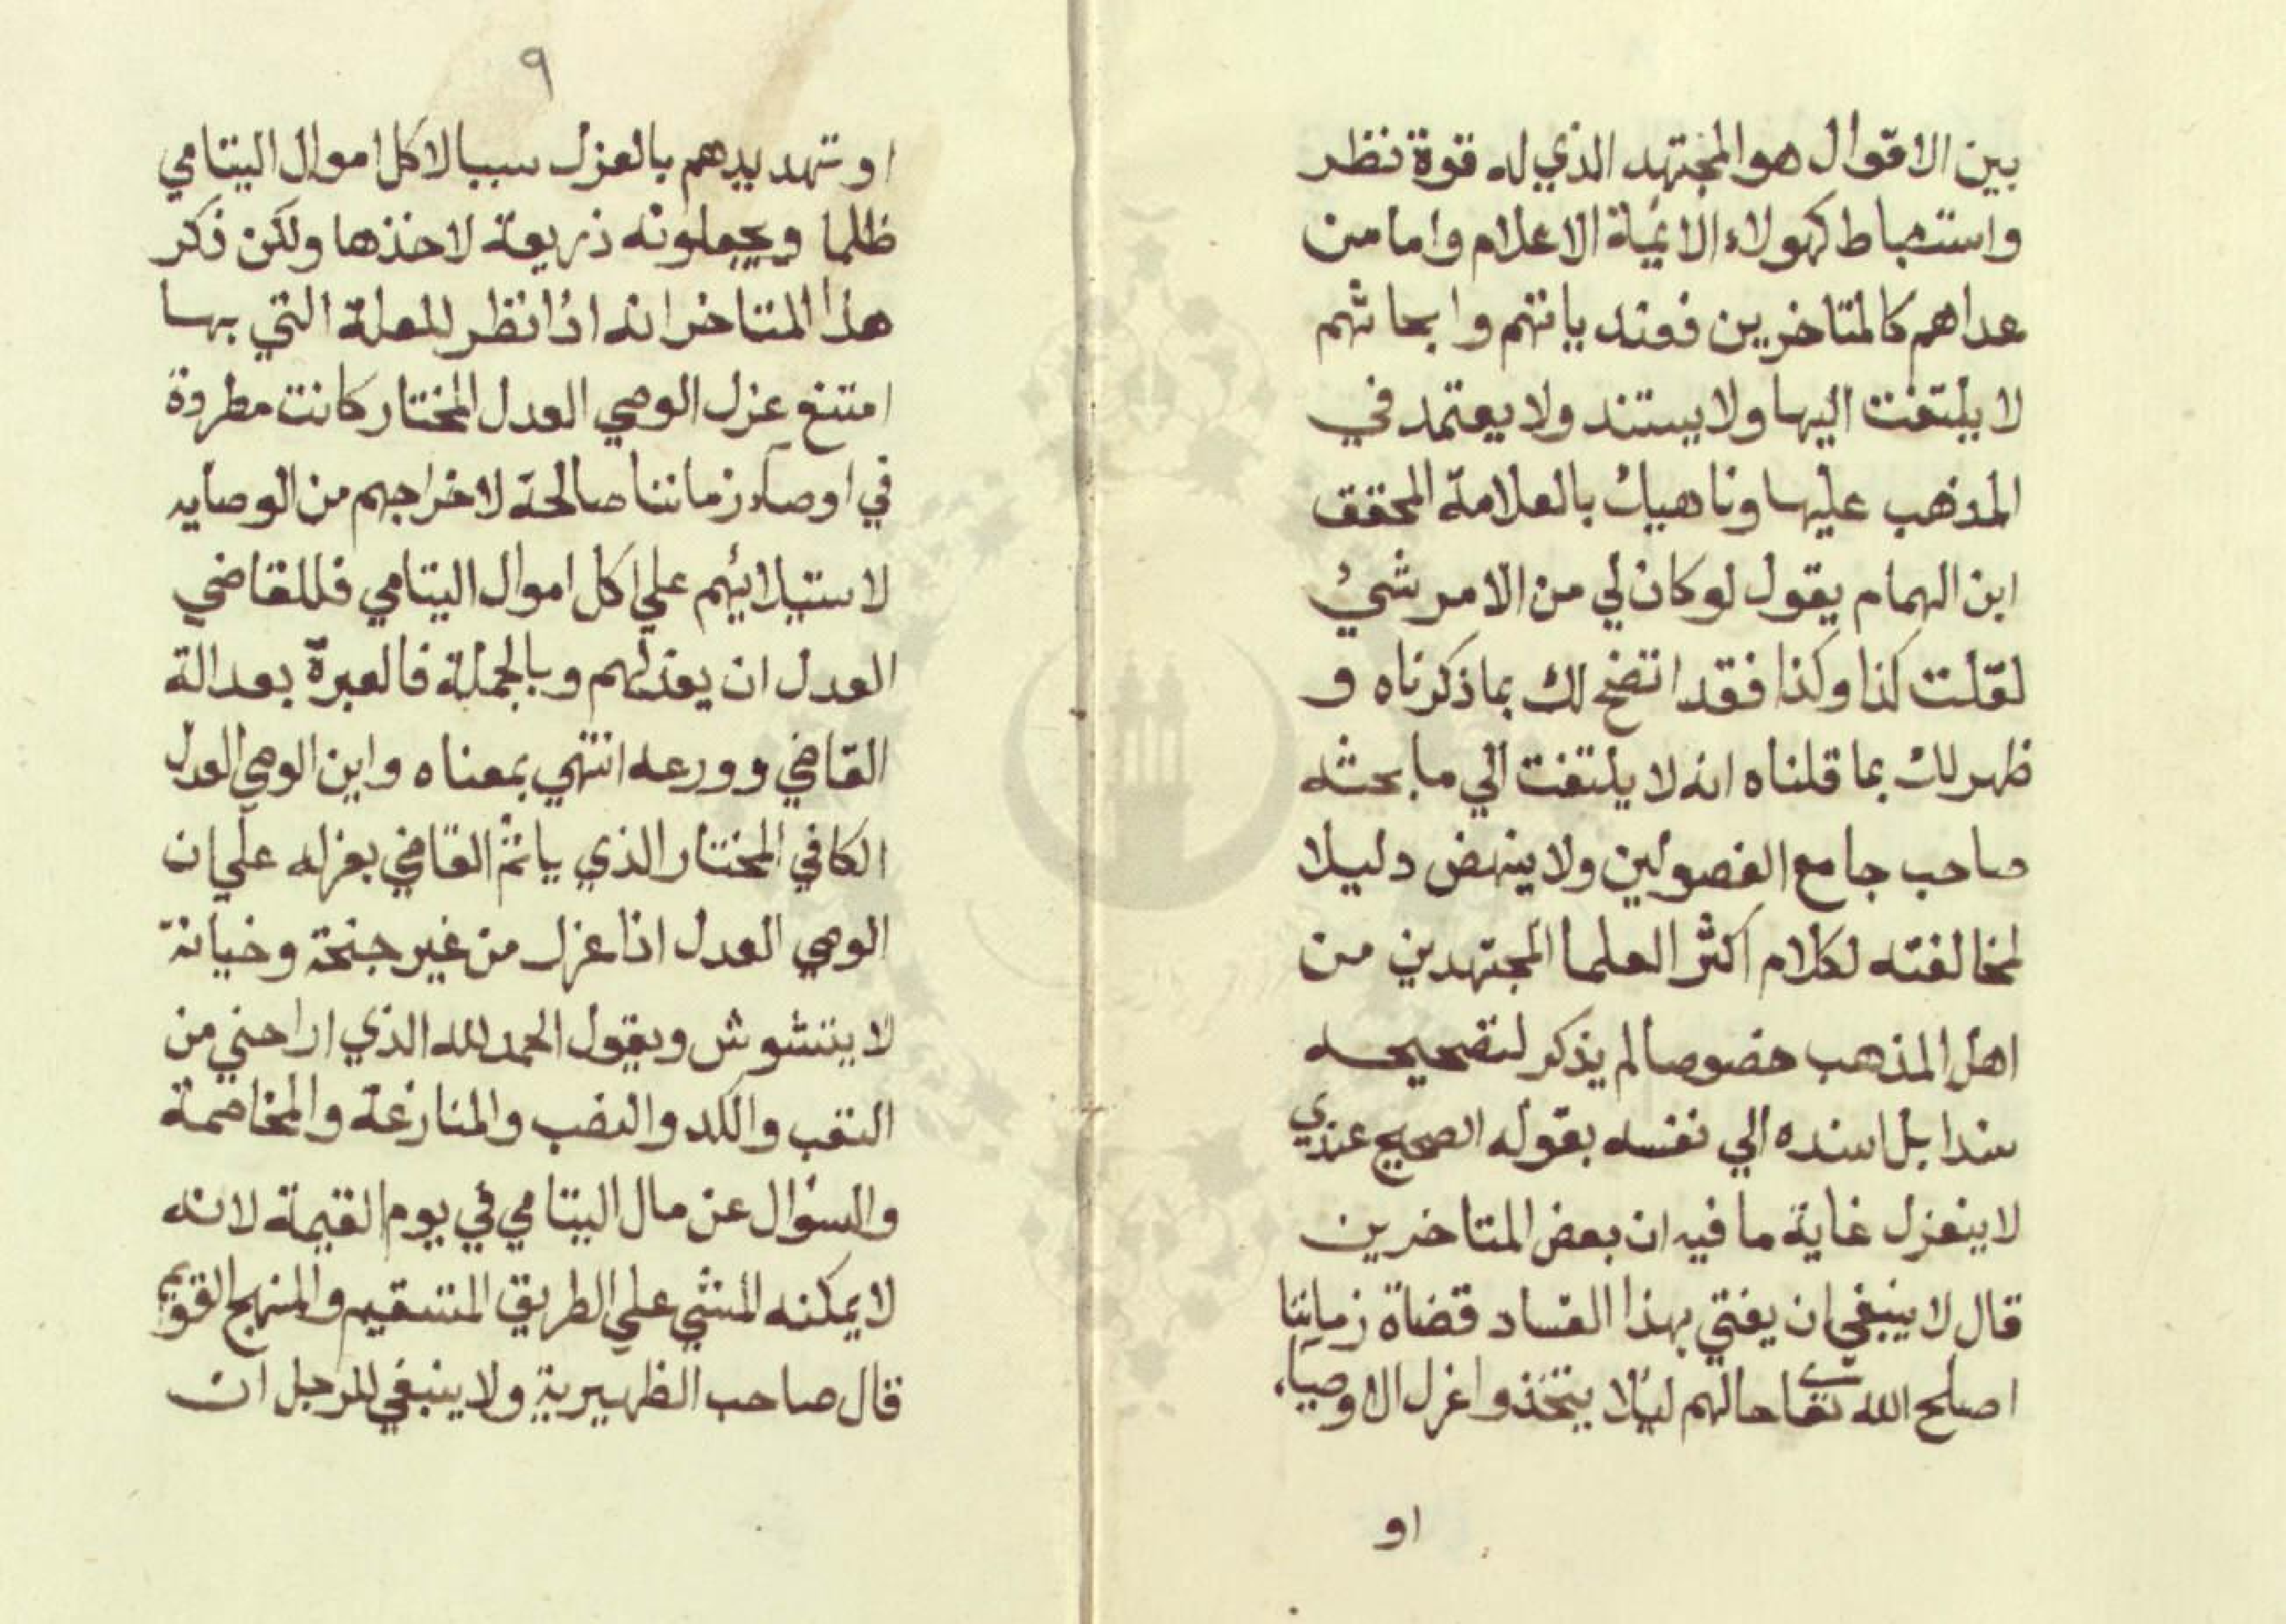 بين الاقوال هو المجتهد الذي له قوة نظر
واستنباط كهولاء الائمة الاعلام واما من
عداهم كالمتاخرين فعندياتهم وابحاثهم
لا يلتفت اليها ولا يستند ولا يعتمد في
المذهب عليها وناهيك بالعلامة المحقق
ابن الهمام يقول لو كان لي من الامر شيء
لقلت كذا وكذا فقد اتضح لك بما ذكرناه و
ظهر لك بما قلناه انه لا يلتفت الي ما بحثه
صاحب جامع الفصولين ولا ينهض دليلا
لمخالفته لكلام اكثر العلما المجتهدين من
اهل المذهب خصوصا لم يذكر لتصحيحه
سندا بل اسنده الي نفسه بقوله الصحيح عندي
لا ينعزل غاية ما فيه ان بعض المتاخرين
قال لا ينبغي ان يفتي بهذا الفساد قضاة زماننا
اصلح الله تعالى حالهم ليلا يتخذوا عزل الاوصياء
او
٩
او تهديدهم بالعزل سببا لاكل اموال اليتامي
ظلما ويجعلونه ذريعة لاخذها ولكن ذكر
هذا المتاخر انه اذا نظر للعلة التي بها
امتنع عزل الوصي العدل المختار كانت مطروة
في اوصياء زماننا صالحة لاخراجهم من الوصايه
لاستيلائهم علي اكل اموال اليتامي فللقاضي
العدل ان يعزلهم وبالجملة فالعبرة بعدالة
القاضي وورعه انتهي بمعناه واين الوصي العدل
الكافي المختار الذي ياثم القاضي بعزله علي ان
الوصي العدل اذا عزل من غير جنحة وخيانة
لا يتشوش ويقول الحمد لله الذي اراحني من
التعب والكد والنصب والمنازعة والمخاصمة
والسؤال عن مال اليتامي في يوم القيمة لانه
لا يمكنه المشي علي الطريق المتسقيم والمنهج القويم
قال صاحب الظهيرية ولا ينبغي للرجل ان